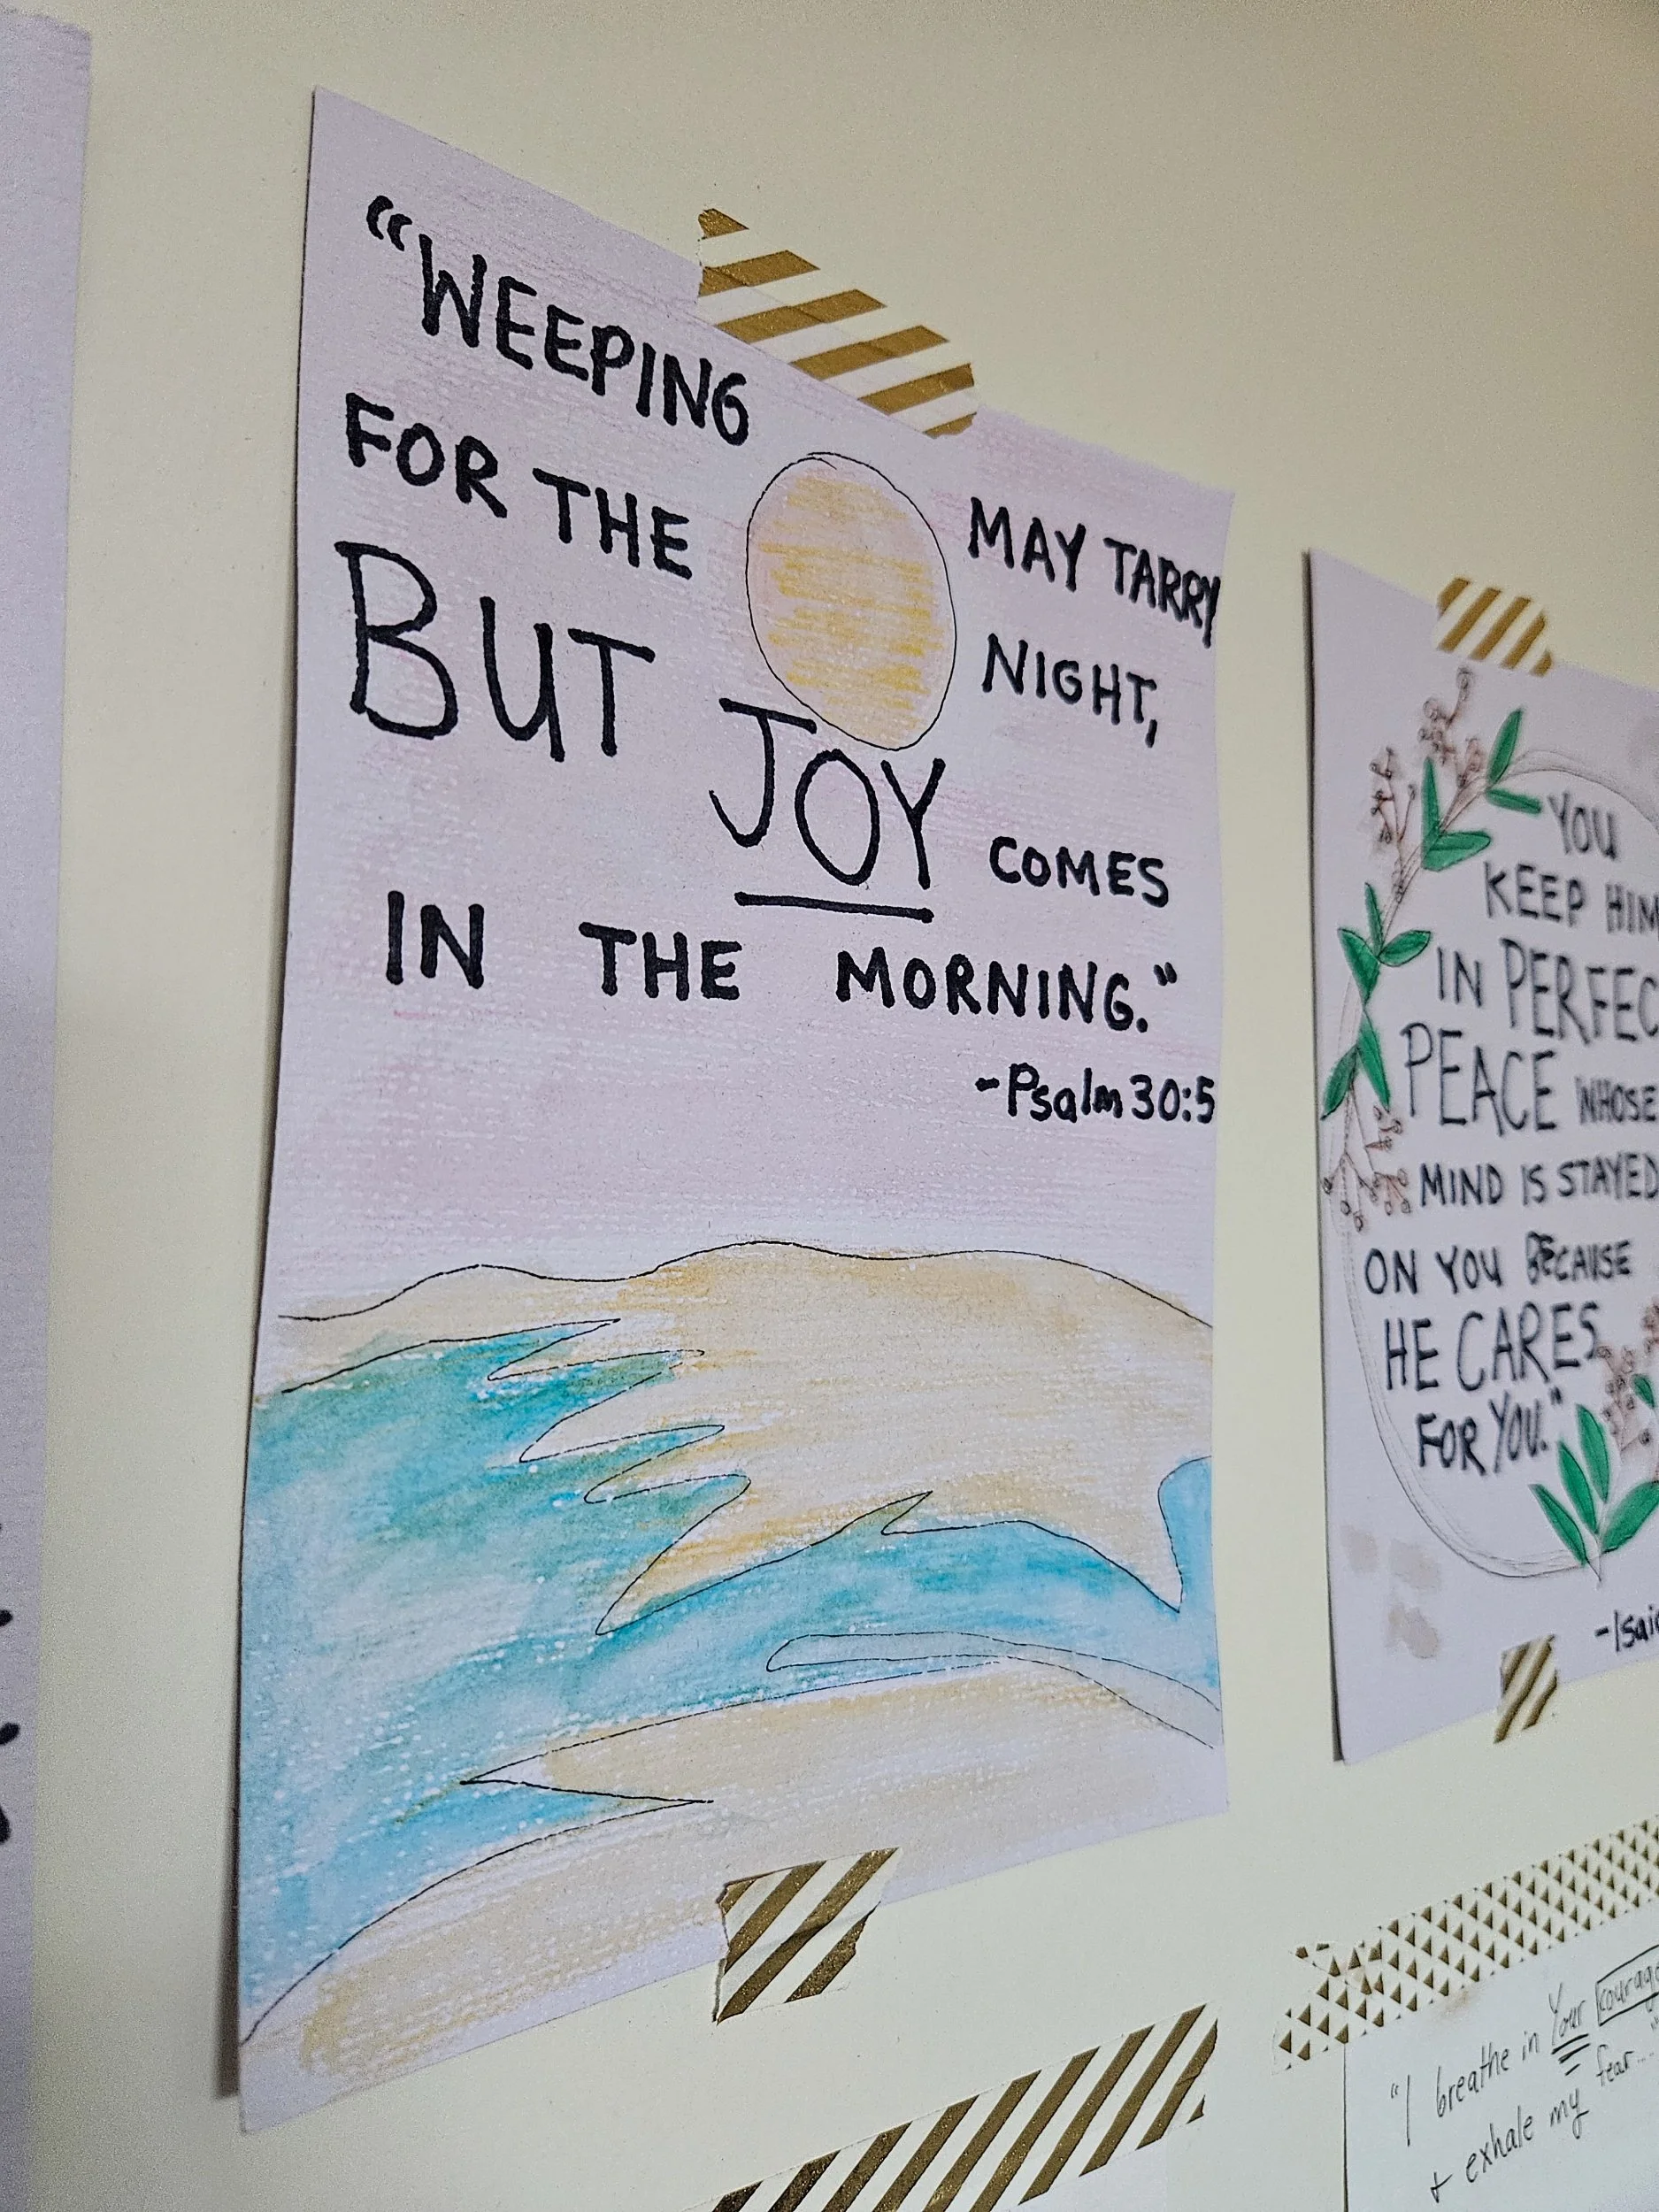 “WEEPING MAY TARRY
FOR THE NIGHT,
BUT JOY COMES
IN THE MORNING.”
-Psalm 30:5
YOU
KEEP HIM
IN PERFEC
PEACE WHOSE
MIND IS STAYED
ON YOU BECAUSE
HE CARES
FOR YOU.”
-Isai
“I breathe in Your courage
+ exhale my fear...”